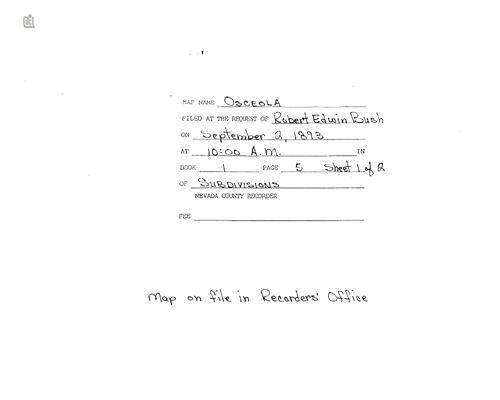 MAP NAME OSCEOLA
FILED AT THE REQUEST OF Robert Edwin Bush
ON September 2, 1893
AT 10:00 A.M. IN
BOOK 1 PAGE 5 Sheet 1 of 2
OF SUBDIVISIONS
NEVADA COUNTY RECORDER
FEE
Map on file in Recorders' Office